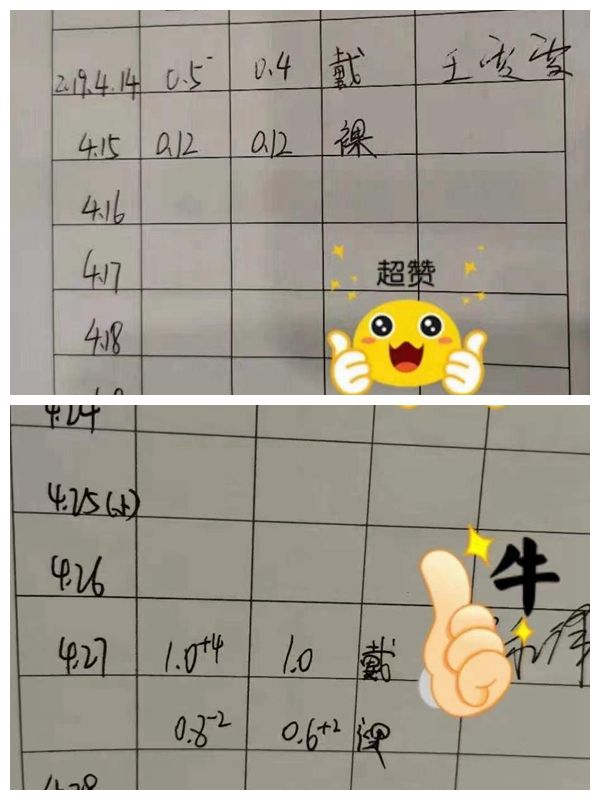 2.19.4.14 0.5⁻ 0.4 戴 王雯雯
4.15 0.12 0.12 裸
4.16
4.17
超赞
4.18
4.24
4.25(外)
4.26
牛
4.27 1.0⁺⁴ 1.0 戴
0.8⁻² 0.6⁺² 裸
4.28